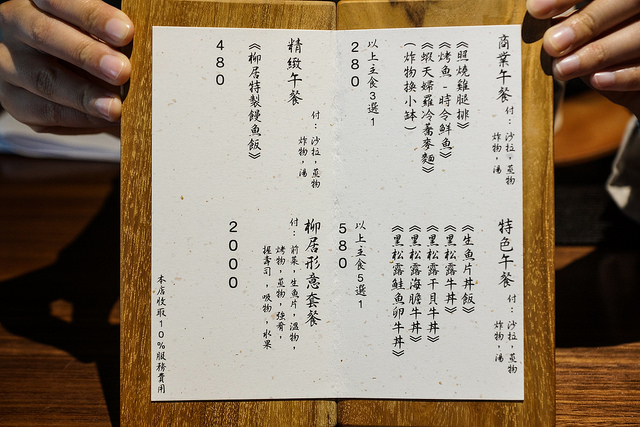 商業午餐
付：沙拉，蒸物
炸物，湯
《照燒雞腿排》
《烤魚-時令鮮魚》
《蝦天婦羅冷蕎麥麵》
（炸物換小缽）
以上主食3選1
280
精緻午餐
付：沙拉，蒸物
炸物，湯
《柳居特製鰻魚飯》
480
特色午餐
付：沙拉，蒸物
炸物，湯
《生魚片丼飯》
《黑松露牛丼》
《黑松露干貝牛丼》
《黑松露海膽牛丼》
《黑松露鮭魚卵牛丼》
以上主食5選1
580
柳居形意套餐
付：前菜，生魚片，溫物，
烤物，蒸物，強肴，
握壽司，吸物，水果
2000
本店收取10%服務費用